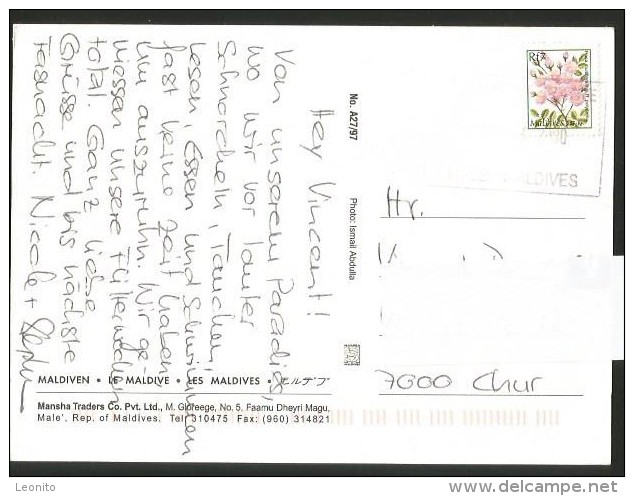 Hey Vincent!
Von unserem Paradies,
wo wir vor lauter
Schnorcheln, Tauchen,
Lesen, Essen und Schwimmen
fast keine Zeit haben
um auszuruhn. Wir ge-
niessen unsere Flitterwochen
total. Ganz liebe
Grüsse und bis nächste
Fasnacht. Nicole +
No. A27/97
Photo: Ismail Abdulla
Rf7
Maldives
MALDIVES
Hr.
7000 Chur
MALDIVEN • LE MALDIVE • LES MALDIVES • モルヂブ
Mansha Traders Co. Pvt. Ltd., M. Gloreege, No. 5, Faamu Dheyri Magu,
Male', Rep. of Maldives. Tel: 310475 Fax: (960) 314821
www.delcampe.net
Leonito